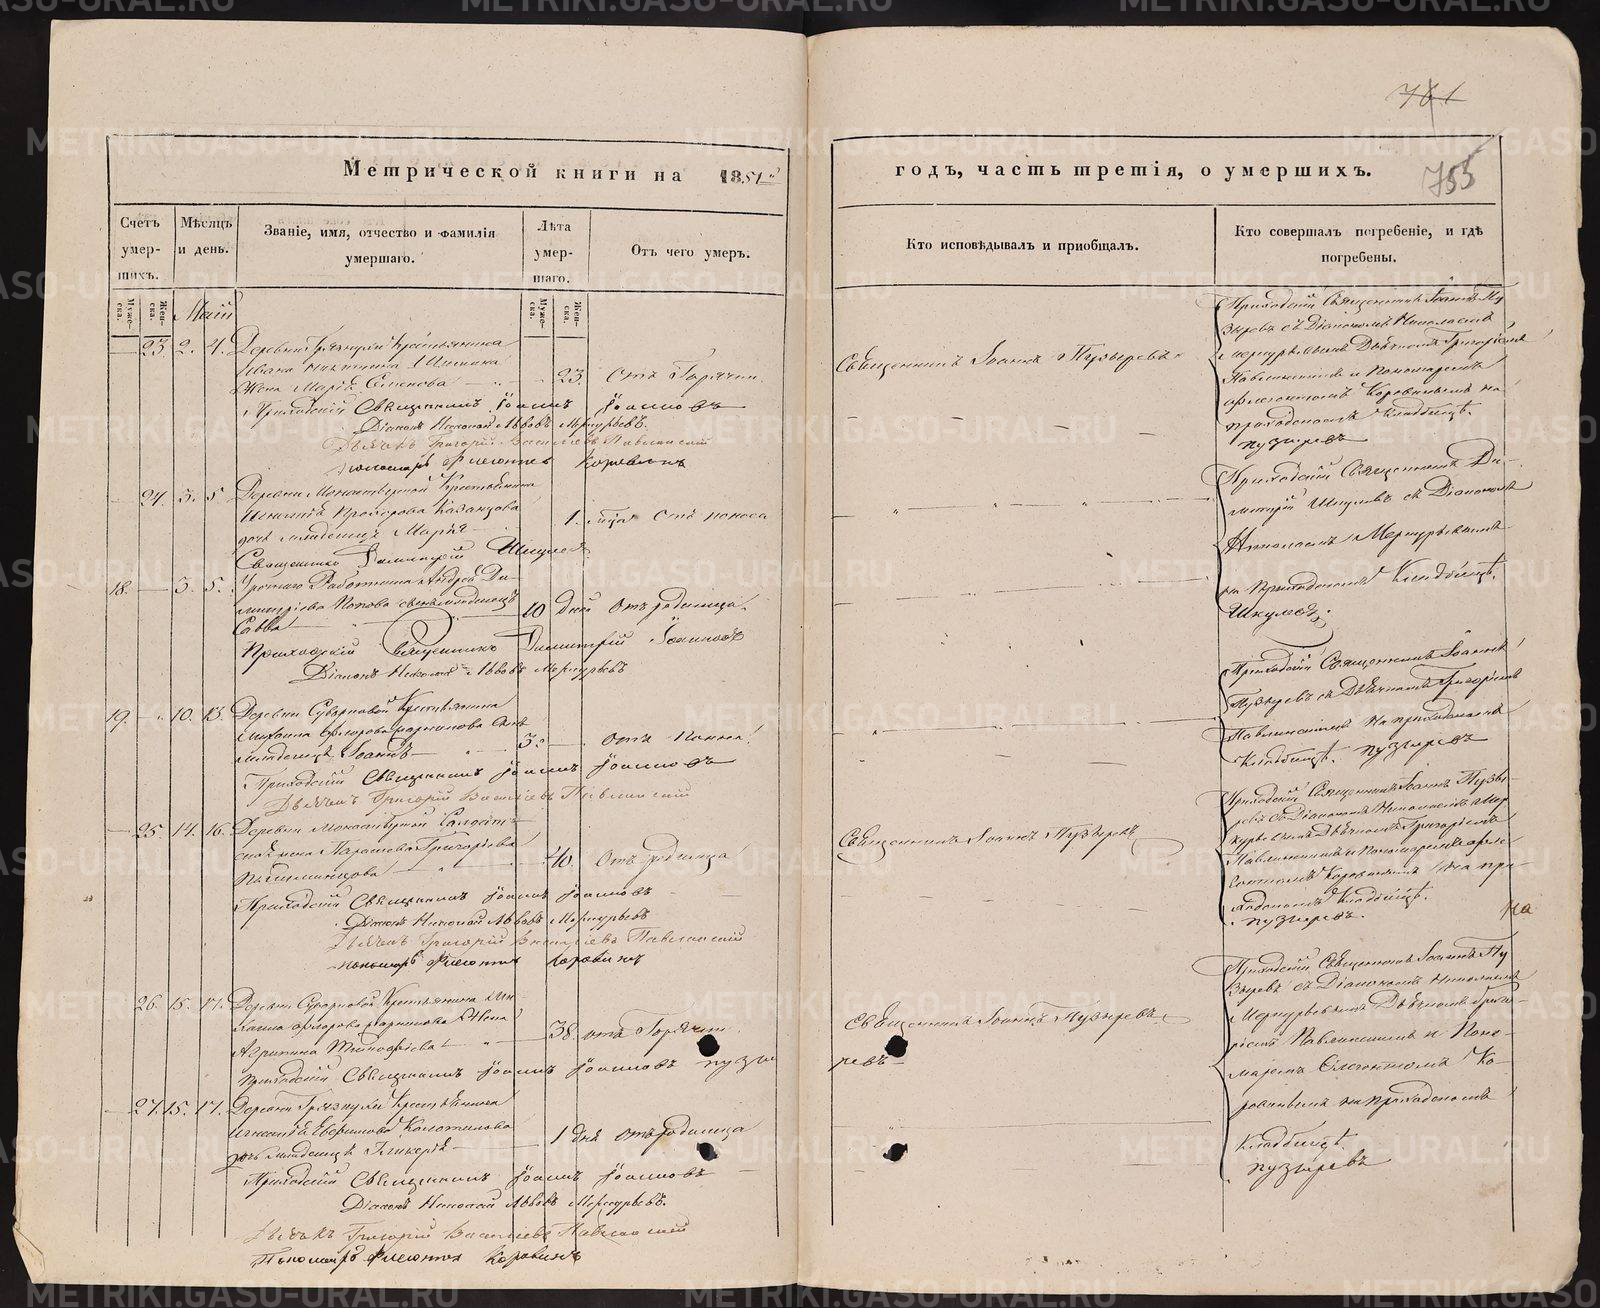 761
755
Метрической книги на 1851й
годъ, часть третія, о умершихъ.
Счетъ умер-шихъ.
Мѣсяцъ и день.
Званіе, имя, отчество и фамилія умершаго.
Лѣта умер-шаго.
Отъ чего умеръ.
Кто исповѣдывалъ и приобщалъ.
Кто совершалъ погребеніе, и гдѣ погребены.
Муже-ска.
Жен-ска.
Май
Муже-ска.
Жен-ска.
23. 2. 4. Деревни Грязнухи Крестьянина
Ивана Никитина
Жена Марія Семенова 23. Отъ Горячки.
Священникъ Іоаннъ Пузыревъ
Приходскій Священникъ Іоаннъ Іоанновъ
Діаконъ Николай Львовъ Меркурьевъ.
Дьячекъ Григорій Васильевъ Павлинскій
Пономарь Флегонтъ Коровинъ
Приходскій Священникъ Іоаннъ Пу
зыревъ съ Діакономъ Николаемъ
Меркурьевымъ Дьячкомъ Григоріемъ
Павлинскимъ и Пономаремъ
Флегонтомъ Коровинымъ на
приходскомъ Кладбищѣ.
Пузыревъ
24. 3. 5. Деревни Монастырской Крестьянина
Игнатія Прохорова Казанцова
дочь младенецъ Марія 1. года Отъ поноса
Священникъ Димитрій Шкулевъ
Приходскій Священникъ Ди-
митрій Шкулевъ съ Діакономъ
Николаемъ Меркурьевымъ
на Приходскомъ Кладбищѣ.
Шкулевъ.
18. 3. 5. Урочнаго Работника Андрея Ди-
митріева Попова сынъ младенецъ
Савва 10 дней Отъ родимца.
Приходскій Священникъ Димитрій Іоанновъ
Діаконъ Николай Львовъ Меркурьевъ
19. 10. 13. Деревни Суворковой Крестьянина
младенецъ Іоаннъ 3. Отъ Поноса.
Приходскій Священникъ Іоаннъ Іоанновъ
Дьячекъ Григорій Васильевъ Павлинскій
Приходскій Священникъ Іоаннъ
Пузыревъ съ Дьячкомъ Григоріемъ
Павлинскимъ на приходскомъ
Кладбищѣ. Пузыревъ
25. 14. 16. Деревни Монастырской Солдат-
ская жена Параскева Григорьева
40. Отъ родимца
Священникъ Іоаннъ Пузыревъ
Приходскій Священникъ Іоаннъ Іоанновъ
Діаконъ Николай Львовъ Меркурьевъ
Дьячекъ Григорій Васильевъ Павлинскій
Пономарь Флегонтъ Коровинъ
Приходскій Священникъ Іоаннъ Пузы-
ревъ съ Діакономъ Николаемъ Мер-
курьевымъ Дьячкомъ Григоріемъ
Павлинскимъ и Пономаремъ Фле-
гонтомъ Коровинымъ на при-
ходскомъ Кладбищѣ.
Пузыревъ.
на
26. 15. 17. Деревни Суворковой Крестьянина Ми-
хаила Жена
Агрипина Тимофѣева 38. отъ Горячки
Священникъ Іоаннъ Пузыревъ
Приходскій Священникъ Іоаннъ Іоанновъ Пузы
ревъ
27. 15. 17. Деревни Грязнухи Крестьянина
Игнатія Евфимова
дочь младенецъ Гликерія 1 дня Отъ родимца
Приходскій Священникъ Іоаннъ Іоанновъ
Діаконъ Николай Львовъ Меркурьевъ.
Дьячекъ Григорій Васильевъ Павлинскій
Пономарь Флегонтъ Коровинъ
Приходскій Священникъ Іоаннъ Пу
зыревъ съ Діакономъ Николаемъ
Меркурьевымъ Дьячкомъ Григо-
ріемъ Павлинскимъ и Поно-
маремъ Флегонтомъ Ко-
ровинымъ на приходскомъ
Кладбищѣ.
Пузыревъ
METRIKI.GASO-URAL.RU